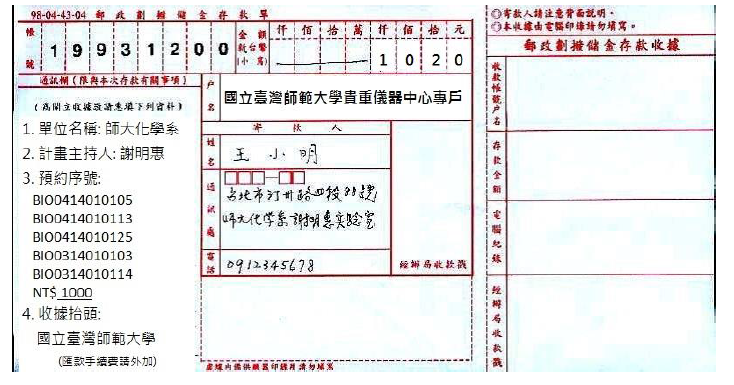 98-04-43-04 郵政劃撥儲金存款單
◎寄款人請注意背面說明。
◎本收據由電腦印錄請勿填寫。
帳號 19931200
金額 新台幣 (小寫) 仟 佰 拾 萬 仟 佰 拾 元
1020
郵政劃撥儲金存款收據
通訊欄(限與本次存款有關事項)
(為開立收據敬請惠填下列資料)
1. 單位名稱: 師大化學系
2. 計畫主持人: 謝明惠
3. 預約序號:
BIO0414010105
BIO0414010113
BIO0414010125
BIO0314010103
BIO0314010114
NT$ 1000
4. 收據抬頭:
國立臺灣師範大學
(匯款手續費請外加)
戶名 國立臺灣師範大學貴重儀器中心專戶
寄款人
姓名 王小明
通訊處
台北市汀州路四段88號
師大化学系謝明惠實驗室
電話 0912345678
經辦局收款戳
虛線內備供機器印錄用請勿填寫
收款帳號戶名
存款金額
電腦紀錄
經辦局收款戳